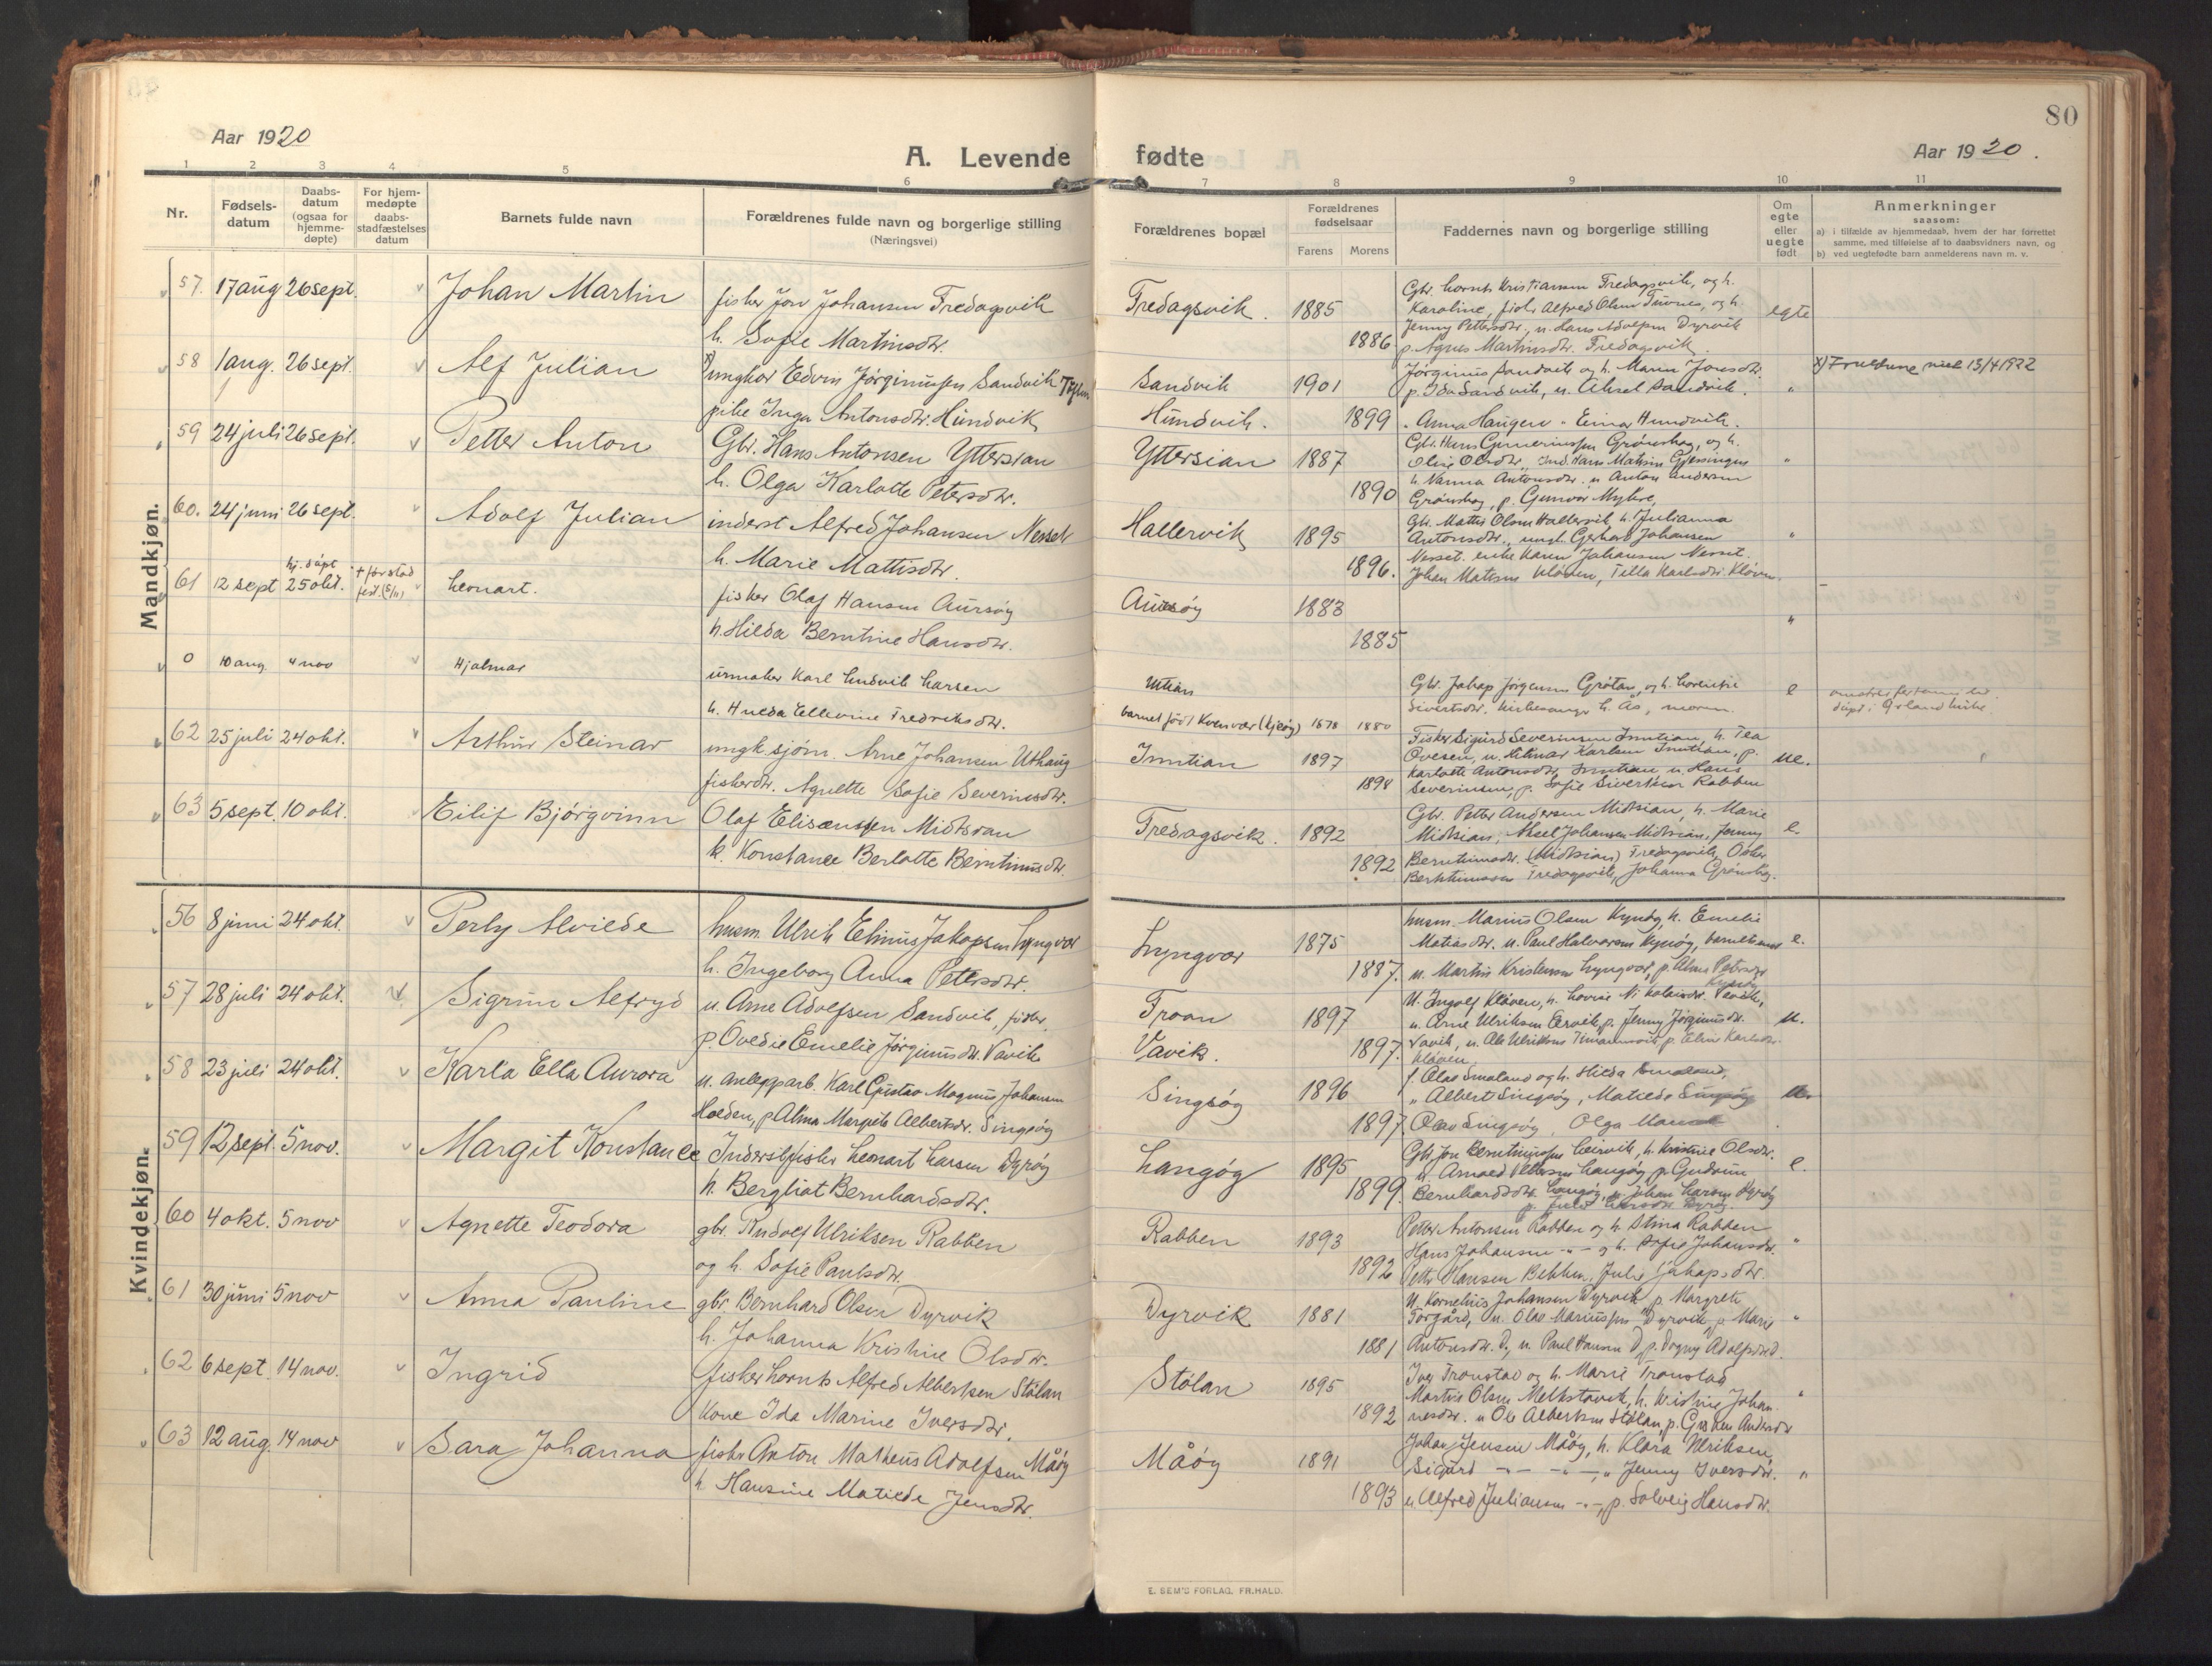 80
Aar 1920
A. Levende fødte
Aar 1920.
1 2 3 4 5 6 7 8 9 10 11
Nr.
Fødsels-
datum
Daabs-
datum
(ogsaa for
hjemme-
døpte)
For hjem-
medøpte
daabs-
stadfæstelses
datum
Barnets fulde navn
Forældrenes fulde navn og borgerlige stilling
(Næringsvei)
Forældrenes bopæl
Forældrenes
fødselsaar
Farens Morens
Faddernes navn og borgerlige stilling
Om
egte
eller
uegte
født
Anmerkninger
saasom:
a) i tilfælde av hjemmedaab, hvem der har forrettet
samme, med tilføielse af to daabsvidners navn, og
b) ved uegtefødte barn anmelderens navn m. v.
Mandkjøn.
57. 17 aug 26 sept. Johan Martin
fisker Jon Johansen Fredagsvik
h. Sofie Martinsdtr.
Fredagsvik. 1885
1886
Karoline, fisk. Alfred Olsen
Jenny Pettersdtr., u. Hans Adolfsen Dyrvik
p. Agnes Martinsdtr. Fredagsvik.
egte
58 1 aug. 26 sept. Alf Julian
ungkar Edvin Jørginussen Sandvik
pike Inga Antonsdtr. Hundvik
Sandvik 1901
Hundvik. 1899
Jørginus Sandvik og h. Maren Jonsdtr.
p. Ida Sandvik, u. Aksel Sandvik.
Anna Haugen Einar Hundvik.
59 24 juli 26 sept. Petter Anton
Gbr. Hans Antonsen Yttersian
h. Olga Karlotte Petersdtr.
Yttersian 1887
1890
h. Nanna Antonsdtr. u Anton Andersen
Grønskag, p. Gunvor Myhre,
60. 24 juni 26 sept. Adolf Julian
inderst Alfred Johansen Nesset
h. Marie Mattisdtr.
Hallervik 1895
1896.
Gbr. Mattis Olsen Hallervik, h. Julianna
Antonsdtr., ungk. Gerhard Johansen
Nesset. enke Karen Johansen Nesset.
61 12 sept hj. døpt 25 okt. Leonart.
fisker Olaf Hansen Aursøy
h. Hilda Berntine Hansdtr.
Aursøy 1883
1885
0 10 aug. 4 nov Hjalmar
urmaker Karl Ludvik Larsen
h. Hulda Ellevine Fredriksdtr.
Uttian
barnet født Kvenvær 1878 1880
Gbr. Jakop Jørgensen Grøtan, og h.
Sivertsdtr. kirkesanger h. Ås, moren.
e
62 25 juli 24 okt. Arthur Steinar
ungk. sjøm. Arne Johansen Uthaug
fiskerdtr. Agnette Sofie Severinsdtr.
Inntian 1897
1898
Fisker Sigurd Severinsen Inntian, h. Tea
Ovesen, u. Hilmar Karlsen Inntian, p.
Karlotte Antonsdtr. Inntian u. Hans
Severinsen, p. Sofie Sivertsen Rabben
ue.
63 5 sept. 10 okt. Eilif Bjørgvinn
Olaf Elisenssen Midtsian
k. Konstance Berlotte Berntinusdtr.
Fredagsvik. 1892
1892
Gbr. Petter Andersen Midtsian, h. Marie
Midtsian, Aksel Johansen Midtsian, Jenny
Berntinusdtr. (Midtsian) Fredagsvik,
Berntinussen Fredagsvik, Johanna Grønskag.
e.
Kvindekjøn.
56 8 juni 24 okt. Perly Alvilde
husm. Ulrik Elinus Jakopsen Lyngvær
h. Ingeborg Anna Petersdtr.
Lyngvær 1875
1887.
husm. Marius Olsen Kynøy, h. Emelie
Matiasdtr. u. Paul Halvorsen Kynøy,
u. Martin Kristensen Lyngvær, p. Alma Petersdtr
Kynøy
e.
57 28 juli 24 okt. Sigrun Alfryd
u. Arne Adolfsen Sandvik, fisker
p. Ovedie Emelie Jørginusdtr. Vavik
Froan 1897
Vavik. 1897.
u. Arne Ulriksen Ervik, p. Jenny Jørginusdtr.
Kløven.
u.
58 23 juli 24 okt. Karla Ella Aurora
u. anleggarb. Karl Gustav Magnus Johansen
Holden, p Alma Margrete Albertsdr. Singsøy
Singsøy 1896
1897
f. Olas Småland og h. Hilda Småland,
„ Albert Singsøy, Matilde Singsøy
Olav Singsøy, Olga
59 12 sept. 5 nov. Margit Konstance
Inderst fisker Leonart Larsen Dyrøy
h. Bergliot Bernhardsdtr.
Langøy 1895
1899.
Gbr. Jon Berntinussen Leirvik, h. Kristine Olsdtr.
u. Arnold Pettersen Langøy, p. Gudrun
Bernhardsdtr. Langøy, u. Johan Larsen Dyrøy
e.
60 4 okt. 5 nov Agnette Teodora
gbr. Rudolf Ulriksen Rabben
og h. Sofie Paulsdtr.
Rabben 1893
1892
Petter Antonsen Rabben og h. Stina Rabben
Hans Johansen -„- og h. Sofie Johansdtr.
Petter Hansen Bekken, Julie Jakopsdtr.
61 30 juni 5 nov Anna Pauline
gbr Bernhard Olsen Dyrvik
h. Johanna Kristine Olsdtr.
Dyrvik 1881
1881
u. Kornelius Johansen Dyrvik p. Margrete
Torgård, u. Olav Mariussen Dyrvik, p. Marie
Antonsdtr. D., u. Paul Hansen D, p. Dagny Adolfsdtr D.
62 6 sept 14 nov. Ingrid
fisker Lornts Alfred Albertsen Stølan
Kone Ida Marine Iversdtr.
Stølan 1895
1893
Iver Tronstad og h. Marie Tronstad
Martin Olsen Melkstavik, h. Kristine Johan-
nesdtr. u Ole Albertsen Stølan, p.
63 12 aug. 14 nov Sara Johanna
fisker Anton Matheus Adolfsen Måøy
h Hansine Matilde Jensdtr.
Måøy 1891
1893
Johan Jensen Måøy, h. Klara Ulriksen,
Sigurd -„- -„-, Jenny Iversdtr.
u Alfred Julianson -„-, p. Solveig Hansdtr.
E. SEM'S FORLAG, FR.HALD.